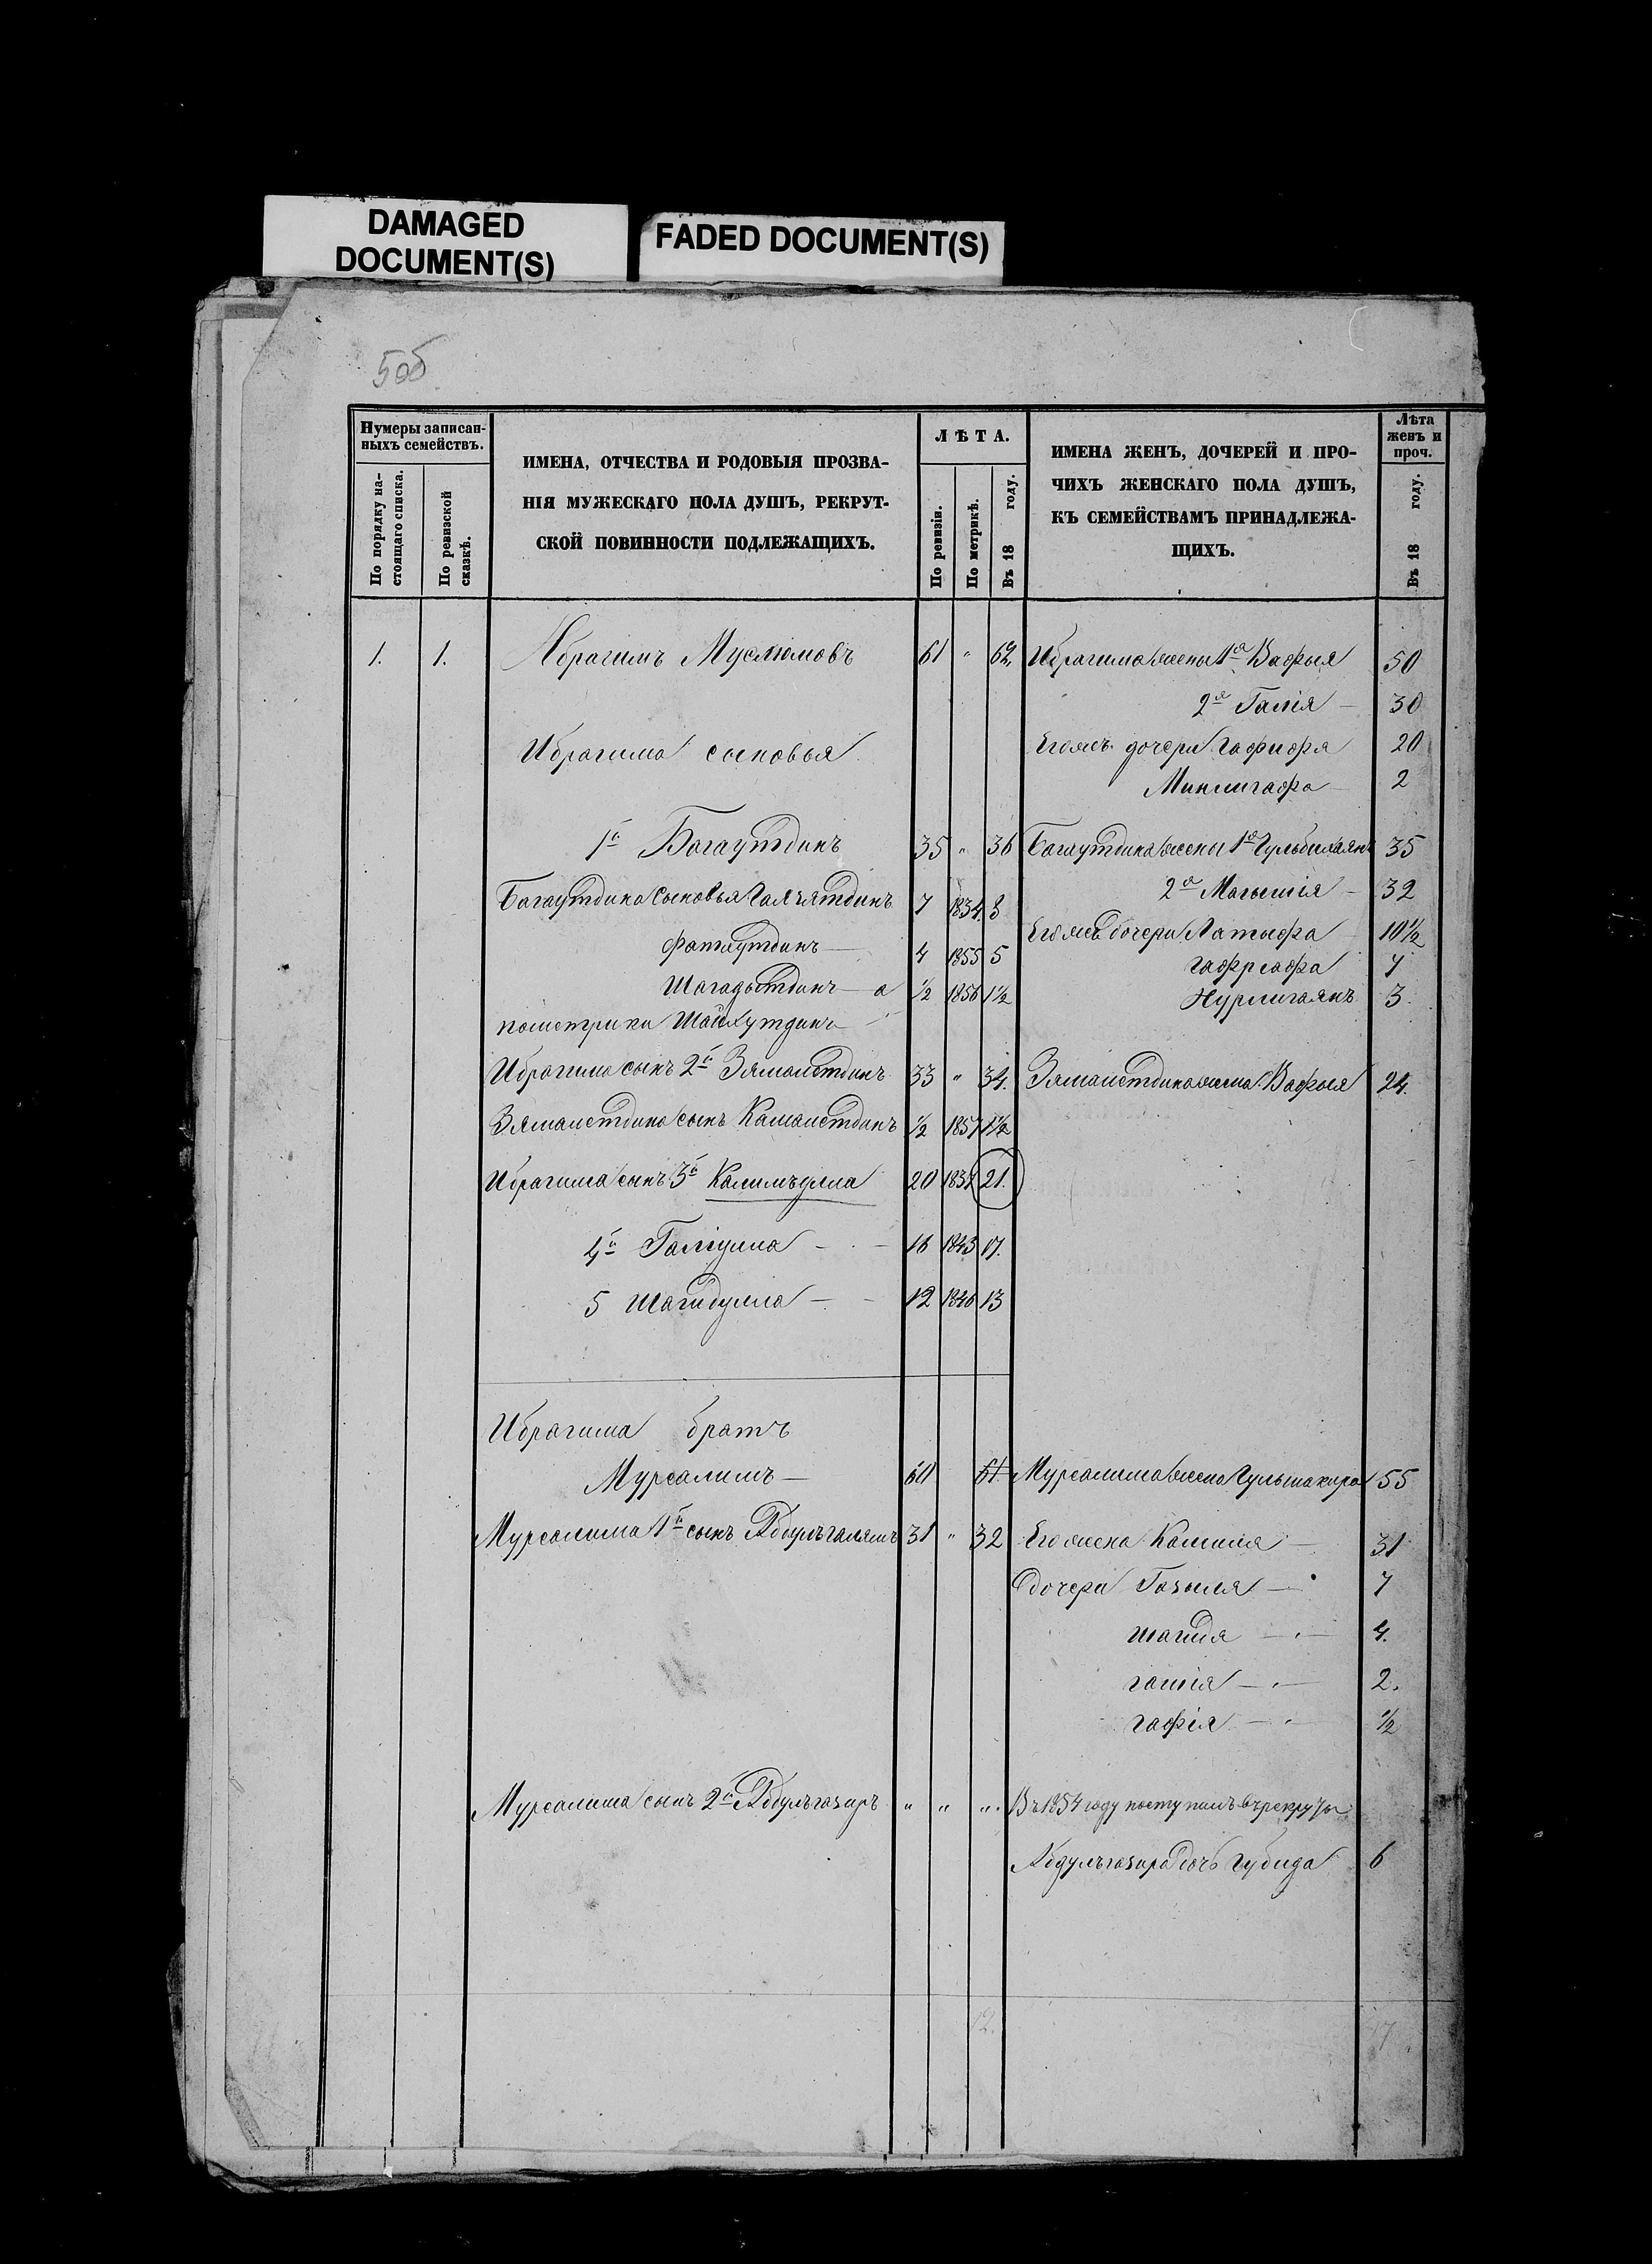 DAMAGED
DOCUMENT(S)
FADED DOCUMENT(S)
Нумеры записан-
ныхъ семействъ.
По порядку на-
стоящаго списка.
По ревизской
сказкѣ.
ИМЕНА, ОТЧЕСТВА И РОДОВЫЯ ПРОЗВА-
НІЯ МУЖЕСКАГО ПОЛА ДУШЪ, РЕКРУТ-
СКОЙ ПОВИННОСТИ ПОДЛЕЖАЩИХЪ.
ЛѢТА.
По ревизіи.
По метрикѣ.
Въ 18 году.
ИМЕНА ЖЕНЪ, ДОЧЕРЕЙ И ПРО-
ЧИХЪ ЖЕНСКАГО ПОЛА ДУШЪ,
КЪ СЕМЕЙСТВАМЪ ПРИНАДЛЕЖА-
ЩИХЪ.
Лѣта
женъ и
проч.
Въ 18 году.
1. 1. Ибрагимъ Муслюмовъ 61 " 62 Ибрагима жены 1я Вафыя 50
2я Галія — 30
Ибрагима сыновья Егожъ дочери Гафифя 20
Миннигафа — 2
1й Багаутдинъ 35 " 36 Багаутдина жены 1я Гульбижаянъ 35
Багаутдина сыновья 7 8 2я Магышія — 32
Фатхутдинъ — 4 1855 5 Егожъ дочери Латыфа 10½
½ 1856 1½ 7
пометрики Шайхутдинъ Нурлигаянъ 3.
Ибрагима сынъ 2й Зямалетдинъ 33 " 34. Зямалетдина жена Вафыя 24.
Зямалетдина сынъ Камалетдинъ ½ 1857 1½
Ибрагима сынъ 3й Калимъулла 20 1837 21.
4й Галіулла — 16 1843 17.
5 Шагидулла — 12 1846 13
Ибрагима братъ
Мурсалимъ — 60 61 Мурсалима жена Гульшакира 55
Мурсалима 1й сынъ Абдулъгалямъ 31 " 32 Его жена Камиля — 31
дочери Газыля — 7
шагидя — 4.
галія — 2.
гафія — ½
Мурсалима сынъ 2й Абдулъгазиръ " " ". Въ 1854 году поступилъ въ рекруты
Абдулъгазира дочь Губида 6
12.
17.